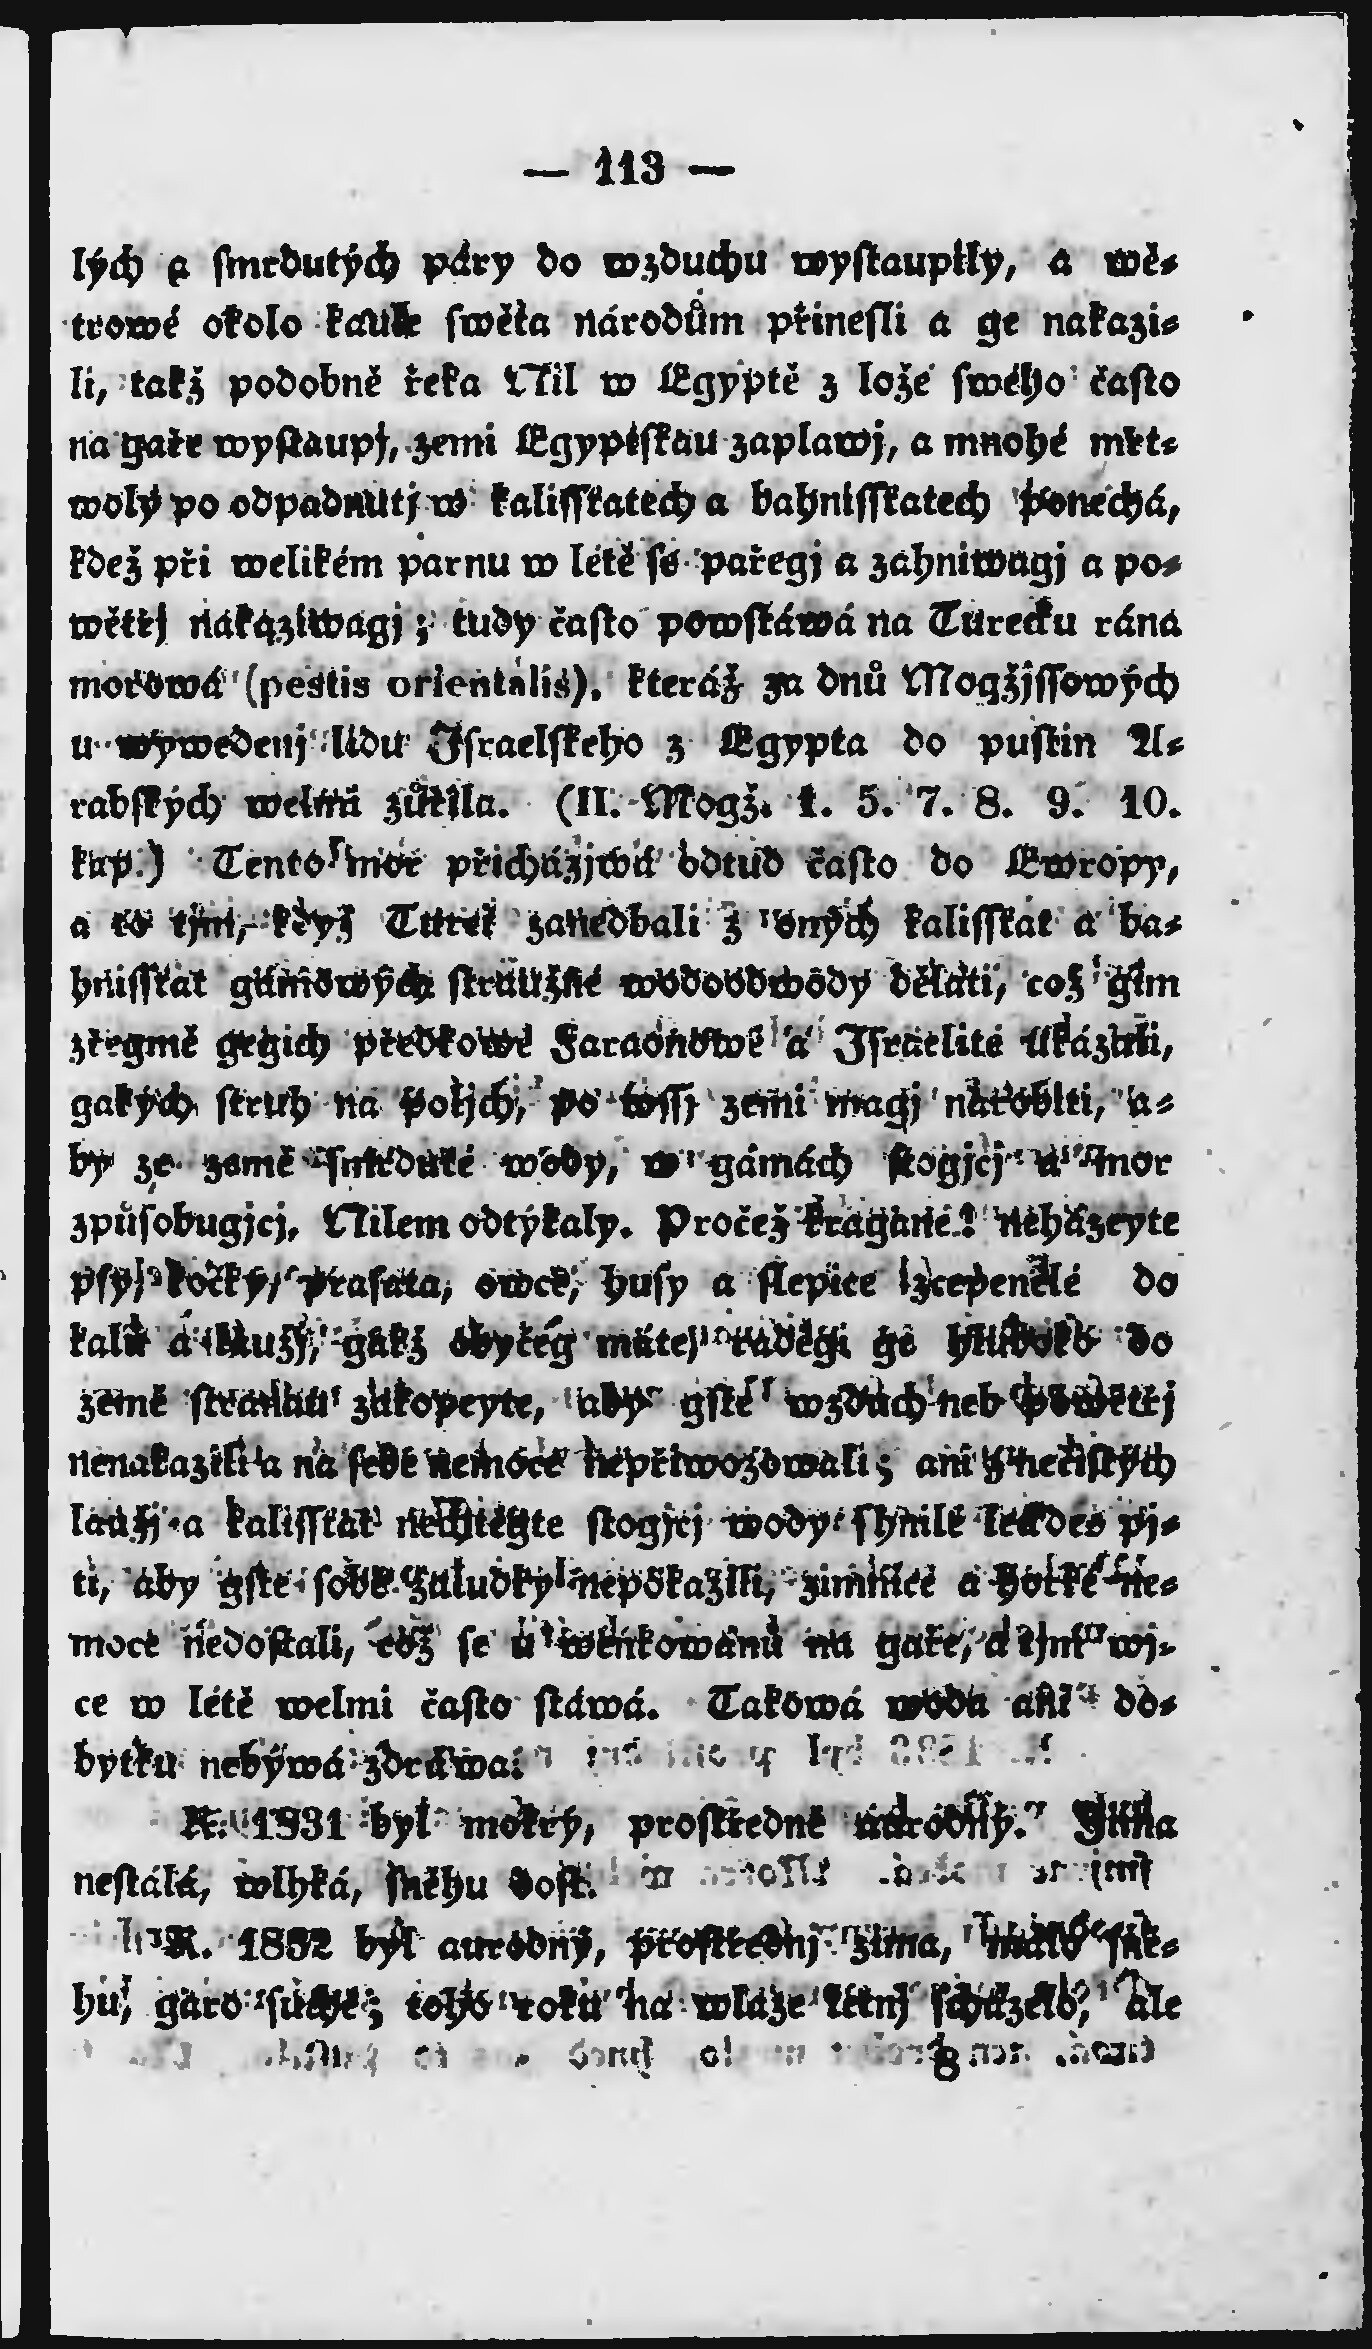 — 113 —
lých a smrdutých páry do wzduchu wystaupily, a wě-
trowé okolo kaule swěta národům přinesli a ge nakazi-
li, takž podobně řeka Nil w Egyptě z lože swého často
na gaře wystaupj, zemi Egyptskau zaplawj, a mnohé mrt-
woly po odpadnutj w kalisskatech a bahnisskatech ponechá,
kdež při welikém parnu w létě se pařegj a zahniwagj a po-
wětřj nakaziwagj; tudy často powstáwá na Turecku rána
morowá (pestis orientalis), kteráž za dnů Mogžjssowých
u wywedenj lidu Israelskeho z Egypta do pustin A-
rabských welmi zůřila. (II. Mogž. 1. 5. 7. 8. 9. 10.
kap.) Tento mor přicházjwá odtud často do Ewropy,
a to tjm, když Turek zanedbali z oných kalisskat a ba-
hnisskat gámowých stružné wodoodwody dělati, což gim
zřegmě gegich předkowé Faraonowé a Israelité ukázali,
gakých struh na poljch, po wssj zemi magj narobiti, a-
by ze země smrduté wody, w gámách stogjcj a mor
způsobugjcj, Nilem odtýkaly. Pročež kragané! neházeyte
psy, kočky, prasata, owce, husy a slepice zcepenělé do
kalu a lauži, gakž obyčeg máte, raděgi ge hluboko do
země stranau zakopeyte, aby gste wzduch neb powětřj
nenakazili a na sebe nemoce nepřiwozowali; ani z nečistých
laužj a kalisskat nechtěgte stogjcj wody shnilé leckdes pj-
ti, aby gste sobě žaludky nepokazili, zimnice a horké ne-
moce nedostali, což se u wenkowanů na gaře, a tjm wj-
ce w létě welmi často stáwá. Takowá woda ani do-
bytku nebýwá zdrawa.
R. 1831 byl mokrý, prostředně aurodný. Zima
nestálá, wlhká, sněhu dost.
R. 1832 byl aurodný, prostřednj zima, málo sně-
hu, garo suché; toho roku na wláze letnj scházelo, ale
8